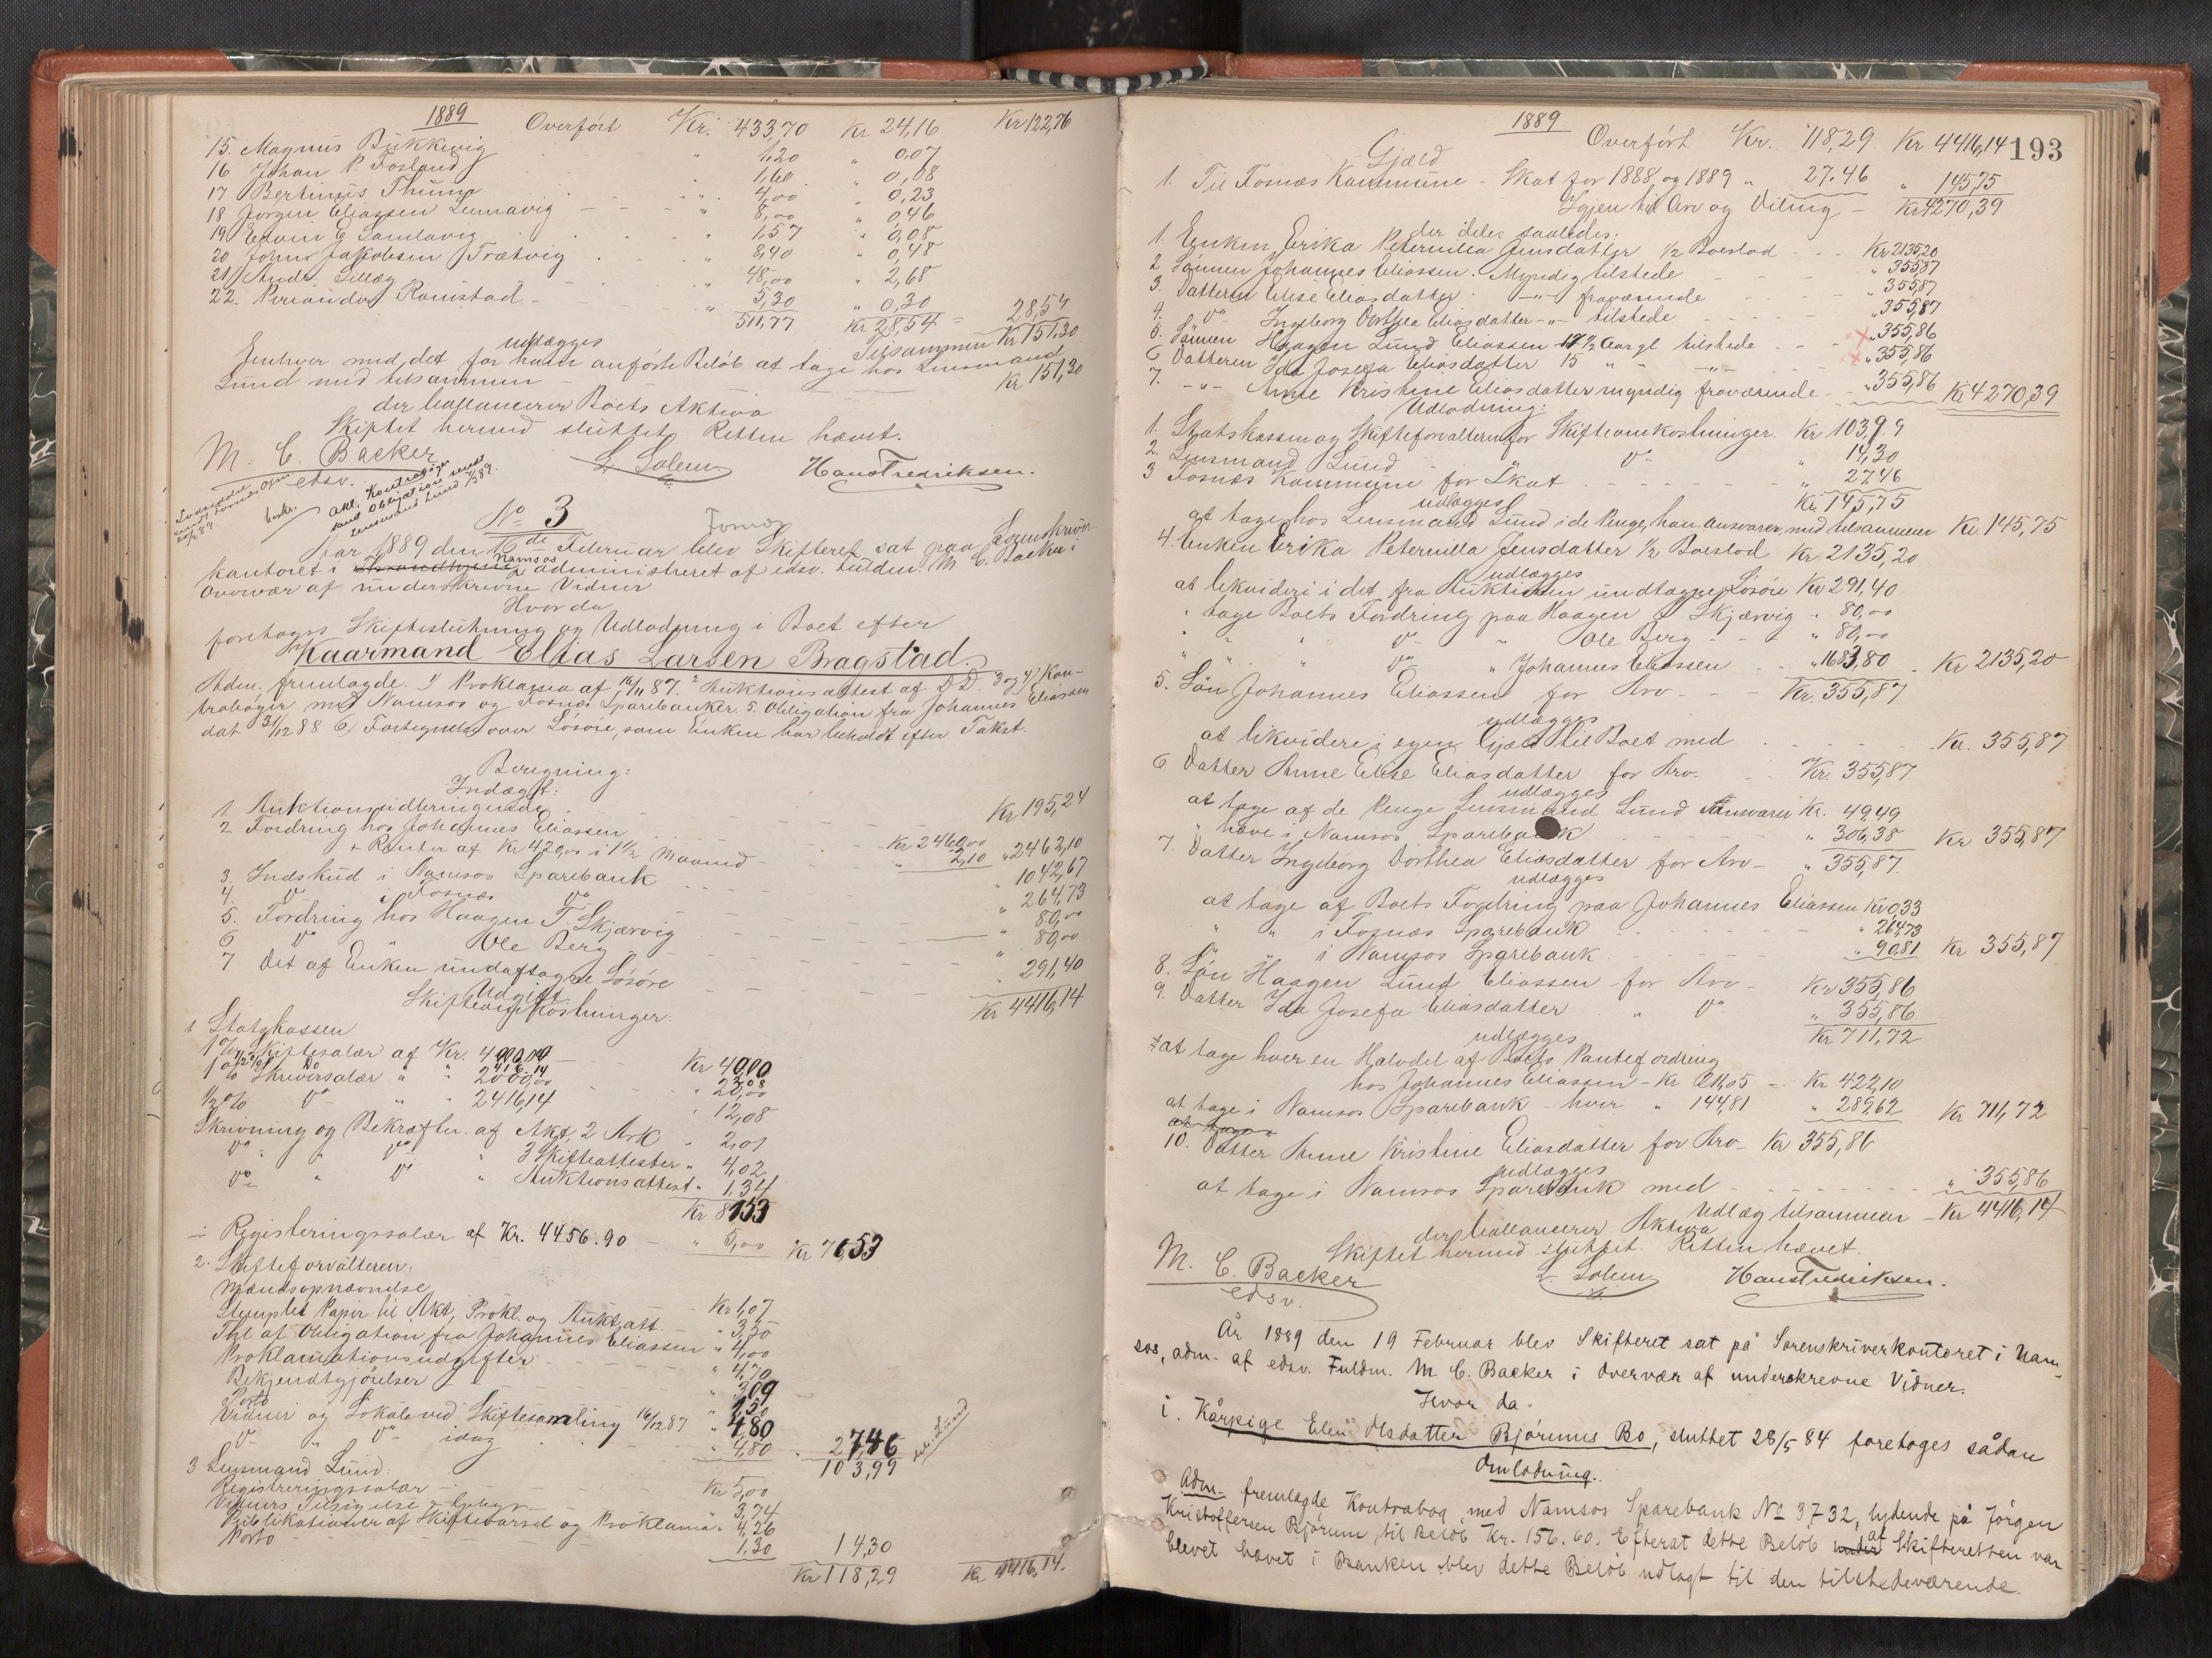 1889
Overført Kr. 433,70 Kr 24,16 Kr 122,76
15. Magnus Bukkevig " 1,20 " 0,07
16 Johan P. Fosland " 1,60 " 0,08
17 Bertinus Thunø " 4,00 " 0,23
18 Jørgen Eliassen Lunavig " 8,00 " 0,46
19 Edvin E Samlavig " 1,57 " 0,08
20 Johns Jakobsen Trætvig " 8,40 " 0,48
21 Andr. Sellæg " 48,00 " 2,68
22. Periander Ramstad " 5,30 " 0,30 28,54
511,77 Kr 28,54 Tilsammen Kr 151,30
udlægges
Enhver med det for ham anførte Beløb at tage hos Lensmand
Lund med tilsammen Kr 151,30
der ballancerer Boets Aktiva
Skiftet hermed sluttet. Retten hævet.
M. C. Backer
edsv.
L. Solem
Hans Fredriksen.
akt. Kontrabøger
samt Obligation med
Lensmand Lund
No 3
Fosnes
Aar 1889 den 16de Februar blev Skifteret sat paa Sorenskriver-
kontoret i Namsos administreret af edsv. Fuldm. M. C. Backer i
Overvær af underskrevne Vidner
Hvor da
foretoges Skiftesluttning og Udlodning i Boet efter
Kaarmand Elias Larsen Bragstad.
Adm. fremlagde. 1) Proklama af 16/11 87. 2 Auktionsattest af D.D. 3 og 4) Kon-
trabøger med Namsos og Fosnæs Sparebanker. 5. Obligation fra Johannes Eliassen
dat 31/12 88 6) Fortegnelse over Løsøre, som Enken har beholdt efter Takst.
Beregning:
Indtægt:
1 Auktionsudbringende Kr 195,24
2 Fordring hos Johannes Eliassen Kr 2460,00
+ Renter af Kr 420,00 i 1 1/2 Maaned " 2,10 " 2462,10
3. Indskud i Namsos Sparebank " 1042,67
4. do i Fosnæs do " 264,73
5. Fordring hos Haagen T. Skjærvig " 80,00
6 do " Ole Berg " 80,00
7 Det af Enken undaftagne Løsøre 291,40
Kr 4416,14
Udgift
Skifteomkostninger:
1 Statskassen
1% Skiftesalær af Kr. 4000,00 Kr 40,00
1% Skriversalær " " 2000,00 " 20,00
1/2% do " " 2416,14 " 12,08
Skrivning og Bekræftn. af Akt, 2 Ark " 2,01
do " " do " 3 Skifteattester " 4,02
do " do " Auktionsattest " 1,34
Kr 81 53
÷ Registeringssalær af Kr. 4456.90 " 5,00 Kr 76,53
2. Skifteforvalteren:
Mændsopnævnelse Kr 1,07
Stemplet Papir til Akt, Prokl. og Aukt.att. " 3,50
Tgl af Obligation fra Johannes Eliassen " 4,00
Proklamationsudgifter " 4,70
Bekjendtgjørelser " 3,09
Porto " 1,50
Vidner og Lokale ved Skiftesamling 16/12 87 " 4,80
do " do idag " 4,80 " 27,46
103,99
3 Lensmand Lund:
Registreringssalær Kr 5,00
Vidners Tilsigelse & Gebyr " 3,74
Publikationer af Skiftevarsel og Proklama " 4,26
Porto 1,30 14,30
Kr 118,29 Kr 4416,14.
1889
193
Overført Kr. 118,29 Kr 4416,14
Gjæld
1. Til Fosnæs Kommune - Skat for 1888 og 1889 " 27.46 " 145,75
Igjen til Arv og Deling - Kr 4270,39
der deles saaledes:
1. Enken Erika Peternilla Jensdatter 1/2 Boeslod Kr 2135,20
2 Sønnen Johannes Eliassen. Myndig tilstede " 355,87
3. Datteren Elise Eliasdatter -"- fraværende " 355,87
4. do Ingeborg Dorthea Eliasdatter -"- tilstede " 355,87
5. Sønnen Haagen Lund Eliassen 17 1/2 Aar gl tilstede " 355,86
6 Datteren Ida Josefa Eliasdatter 15 " " -"- " 355,86
7. -"- Anne Kristine Eliasdatter myndig fraværende " 355,86 Kr 4270,39
Udlodning:
1. Statskassen og Skifteforvalteren for Skifteomkostninger. Kr 103,99
2. Lensmand Lund " do " 14,30
3 Fosnæs Kommune for Skat " 27,46
Kr 145,75
udlægges
at tage hos Lensmand Lund i de Penge, han ansvarer, med tilsammen Kr 145,75
4. Enken Erika Peternilla Jensdatter 1/2 Boeslod Kr 2135,20
udlægges
at likvidere i det fra Auktionen undtagne Løsøre Kr 291,40
" tage Boets Fordring paa Haagen T Skjærvig " 80,00
" " " do " Ole Berg " 80,00
" " " do " Johannes Eliassen " 1683,80 Kr 2135,20
5. Søn Johannes Eliassen for Arv Kr. 355,87
udlægges
at likvidere i egen Gjæld til Boet med Kr. 355,87
6 Datter Anne Elise Eliasdatter for Arv. Kr. 355,87
udlægges
at tage af de Penge Lensmand Lund Ansvarer Kr. 49,49
" hæve i Namsos Sparebank " 306,38 Kr 355,87
7. Datter Ingeborg Dorthea Eliasdatter for Arv " 355,87.
udlægges
at tage af Boets Fordring paa Johannes Eliassen Kr 0,33
" " i Fosnæs Sparebank " 264,73
" " i Namsos Sparebank " 90,81 Kr 355,87
8. Søn Haagen Lund Eliassen for Arv Kr 355,86
9. Datter Ida Josefa Eliasdatter " do " 355,86
Kr 711,72
udlægges
at tage hver en Halvdel af Boets Pantefordring
hos Johannes Eliassen - Kr 211,05 - Kr 422,10
at tage i Namsos Sparebank - hver " 144,81 " 289,62 Kr 711,72
at tage
10. Datter Anne Kristine Eliasdatter for Arv Kr 355,86
udlægges
at tage i Namsos Sparebank med " 355,86
Udlæg tilsammen Kr 4416,14
der ballancerer Aktiva
Skiftet hermed sluttet. Retten hævet.
M. C. Backer
edsv.
L. Solem
Hans Fredriksen.
År 1889 den 19 Februar blev Skifteret sat på Sorenskriverkontoret i Nam-
sos, adm. af edsv. Fuldm. M. C. Backer i Overvær af underskrevne Vidner.
Hvor da.
i. Kårpige Elen Olsdatter Bjørums Bo, sluttet 28/5 84 foretoges sådan
Omlodning.
Adm. fremlagde Kontrabog med Namsos Sparebank No 3732, lydende på Jörgen
Kristoffersen Bjørum, til Beløb Kr. 156.60. Efterat dette Beløb af Skifteretten var
blevet hævet i Banken blev dette Beløb udlagt til den tilstedeværende.